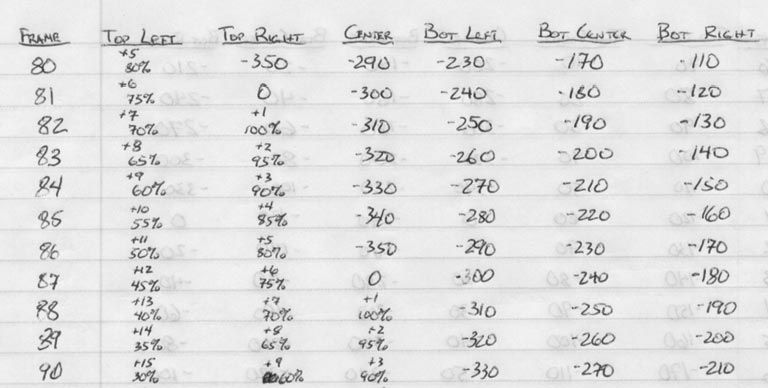 FRAME TOP LEFT TOP RIGHT CENTER BOT LEFT BOT CENTER BOT RIGHT
80 +5 80% -350 -290 -230 -170 -110
81 +6 75% 0 -300 -240 -180 -120
82 +7 70% +1 100% -310 -250 -190 -130
83 +8 65% +2 95% -320 -260 -200 -140
84 +9 60% +3 90% -330 -270 -210 -150
85 +10 55% +4 85% -340 -280 -220 -160
86 +11 50% +5 80% -350 -290 -230 -170
87 +12 45% +6 75% 0 -300 -240 -180
88 +13 40% +7 70% +1 100% -310 -250 -190
89 +14 35% +8 65% +2 95% -320 -260 -200
90 +15 30% +9 60% +3 90% -330 -270 -210